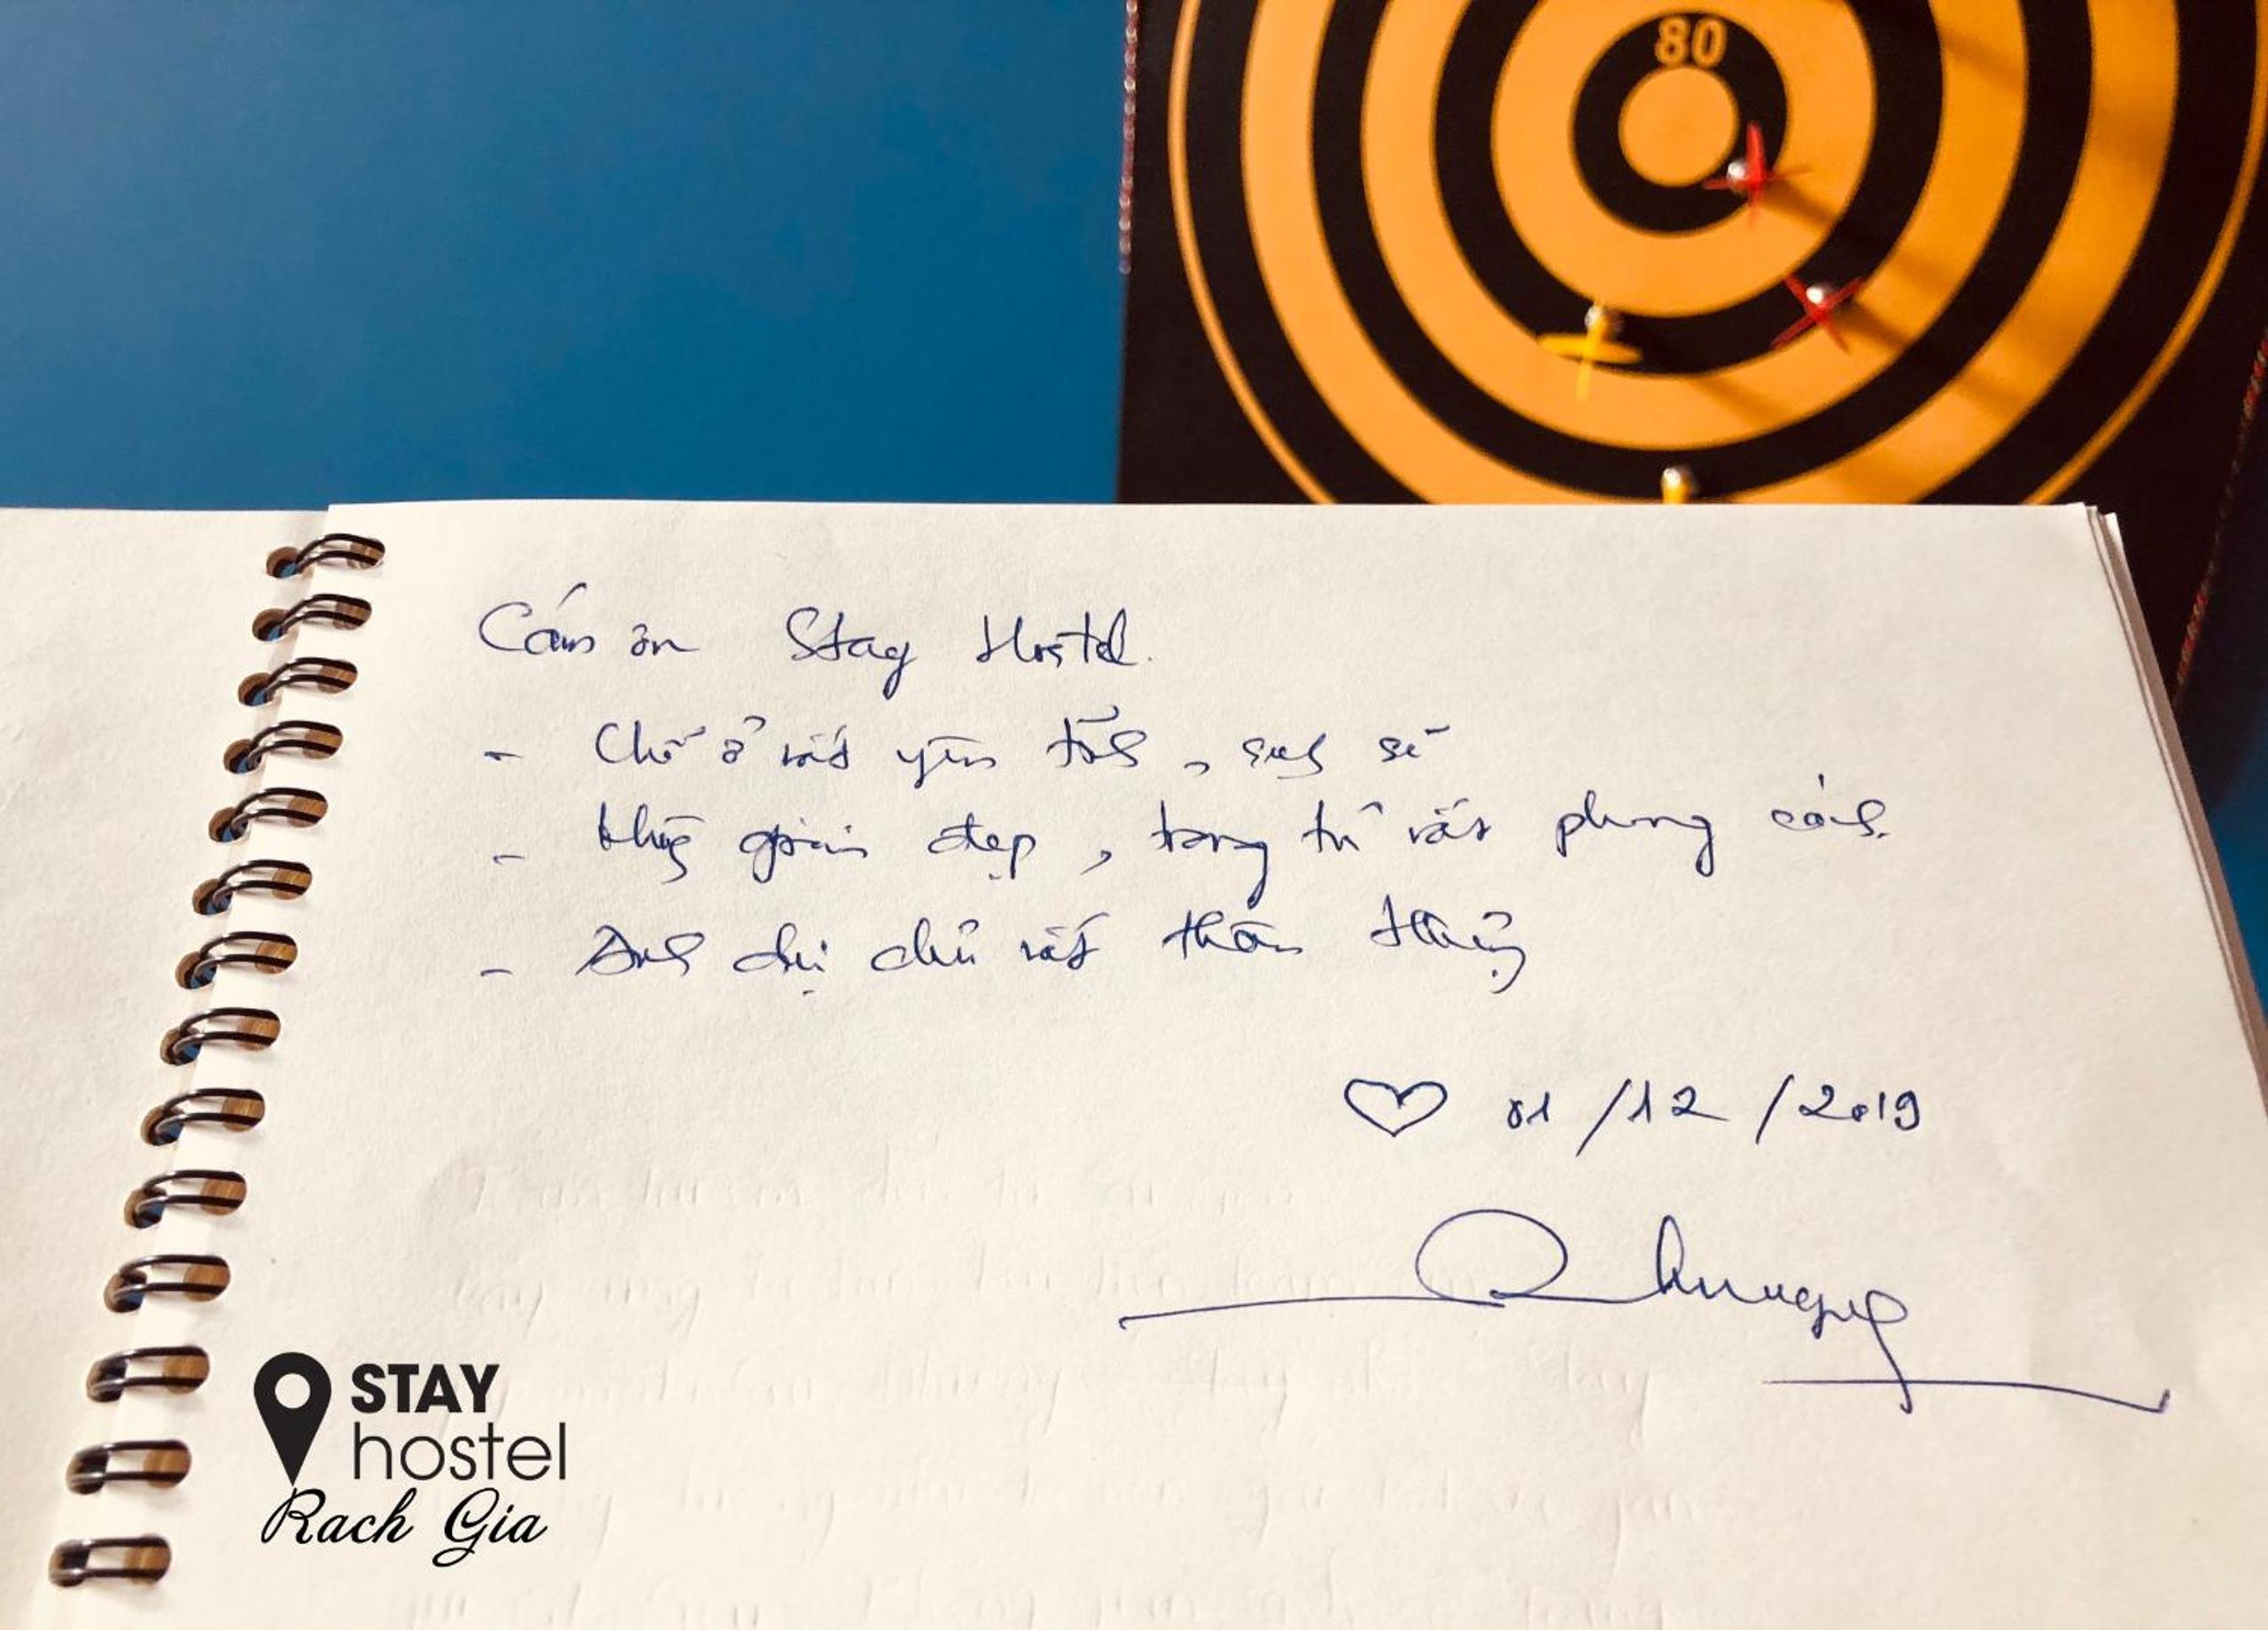 80
Cám ơn Stay Hostel.
- Chỗ ở rất yên tĩnh, sạch sẽ
- Không gian đẹp, trang trí rất phong cách.
- Anh chị chủ rất thân thiện
♡ 01/12/2019
STAY
hostel
Rach Gia